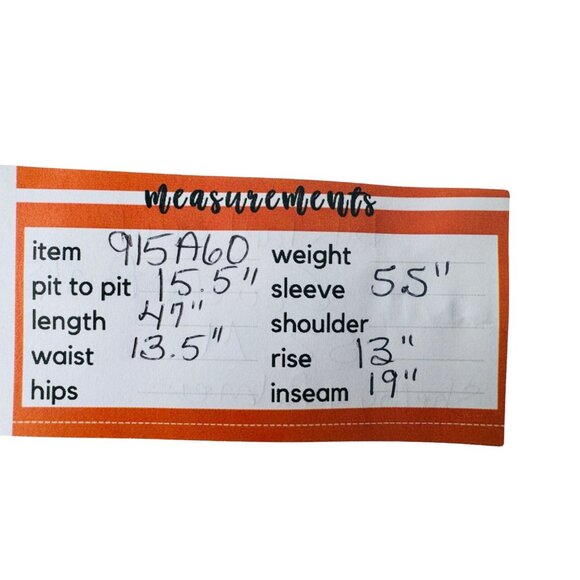 measurements
item 915A60
pit to pit 15.5"
length 47"
waist 13.5"
hips
weight
sleeve 5.5"
shoulder
rise 13"
inseam 19"